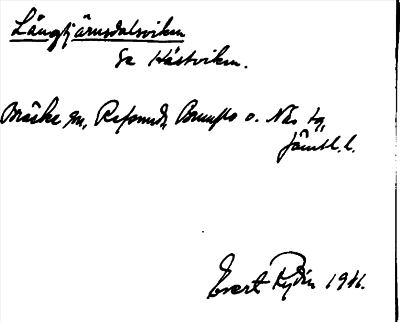 Långtjärnsdalsviken
Se Håstviken.
Bräcke sn, Refsunds, Brunflo o. Näs tg,
Jämtl. l.
Evert Rydin 1946.